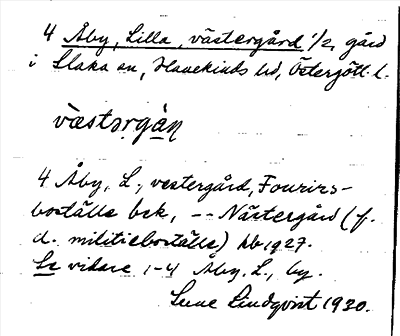 4 Åby, Lilla, västergård 1/2, gård
i Slaka sn, Hanekinds hd, Östergötl. l.
væstərgɑ̀ɳ
4 Åby, L., vestergård, Fourirs-
boställe bck, -- Västergård (f.
d. militieboställe) hb 1927.
Se vidare 1-4 Åby, L., by.
Sune Lindqvist 1930.